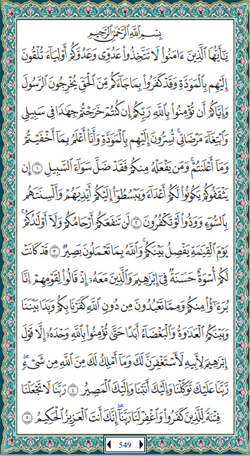 بِسْمِ اللَّهِ الرَّحْمَٰنِ الرَّحِيمِ
يَا أَيُّهَا الَّذِينَ ءَامَنُوا لَا تَتَّخِذُوا عَدُوِّي وَعَدُوَّكُمْ أَوْلِيَاءَ تُلْقُونَ
إِلَيْهِم بِالْمَوَدَّةِ وَقَدْ كَفَرُوا بِمَا جَاءَكُم مِّنَ الْحَقِّ يُخْرِجُونَ الرَّسُولَ
وَإِيَّاكُمْ أَن تُؤْمِنُوا بِاللَّهِ رَبِّكُمْ إِن كُنتُمْ خَرَجْتُمْ جِهَادًا فِي سَبِيلِي
وَابْتِغَاءَ مَرْضَاتِي تُسِرُّونَ إِلَيْهِم بِالْمَوَدَّةِ وَأَنَا أَعْلَمُ بِمَا أَخْفَيْتُمْ
وَمَا أَعْلَنتُمْ وَمَن يَفْعَلْهُ مِنكُمْ فَقَدْ ضَلَّ سَوَاءَ السَّبِيلِ ١ إِن
يَثْقَفُوكُمْ يَكُونُوا لَكُمْ أَعْدَاءً وَيَبْسُطُوا إِلَيْكُمْ أَيْدِيَهُمْ وَأَلْسِنَتَهُم
بِالسُّوءِ وَوَدُّوا لَوْ تَكْفُرُونَ ٢ لَن تَنفَعَكُمْ أَرْحَامُكُمْ وَلَا أَوْلَادُكُمْ
يَوْمَ الْقِيَامَةِ يَفْصِلُ بَيْنَكُمْ وَاللَّهُ بِمَا تَعْمَلُونَ بَصِيرٌ ٣ قَدْ كَانَتْ
لَكُمْ أُسْوَةٌ حَسَنَةٌ فِي إِبْرَاهِيمَ وَالَّذِينَ مَعَهُ إِذْ قَالُوا لِقَوْمِهِمْ إِنَّا
بُرَءَاؤُا مِنكُمْ وَمِمَّا تَعْبُدُونَ مِن دُونِ اللَّهِ كَفَرْنَا بِكُمْ وَبَدَا بَيْنَنَا
وَبَيْنَكُمُ الْعَدَاوَةُ وَالْبَغْضَاءُ أَبَدًا حَتَّى تُؤْمِنُوا بِاللَّهِ وَحْدَهُ إِلَّا قَوْلَ
إِبْرَاهِيمَ لِأَبِيهِ لَأَسْتَغْفِرَنَّ لَكَ وَمَا أَمْلِكُ لَكَ مِنَ اللَّهِ مِن شَيْءٍ
رَّبَّنَا عَلَيْكَ تَوَكَّلْنَا وَإِلَيْكَ أَنَبْنَا وَإِلَيْكَ الْمَصِيرُ ٤ رَبَّنَا لَا تَجْعَلْنَا
فِتْنَةً لِّلَّذِينَ كَفَرُوا وَاغْفِرْ لَنَا رَبَّنَا إِنَّكَ أَنتَ الْعَزِيزُ الْحَكِيمُ ٥
549